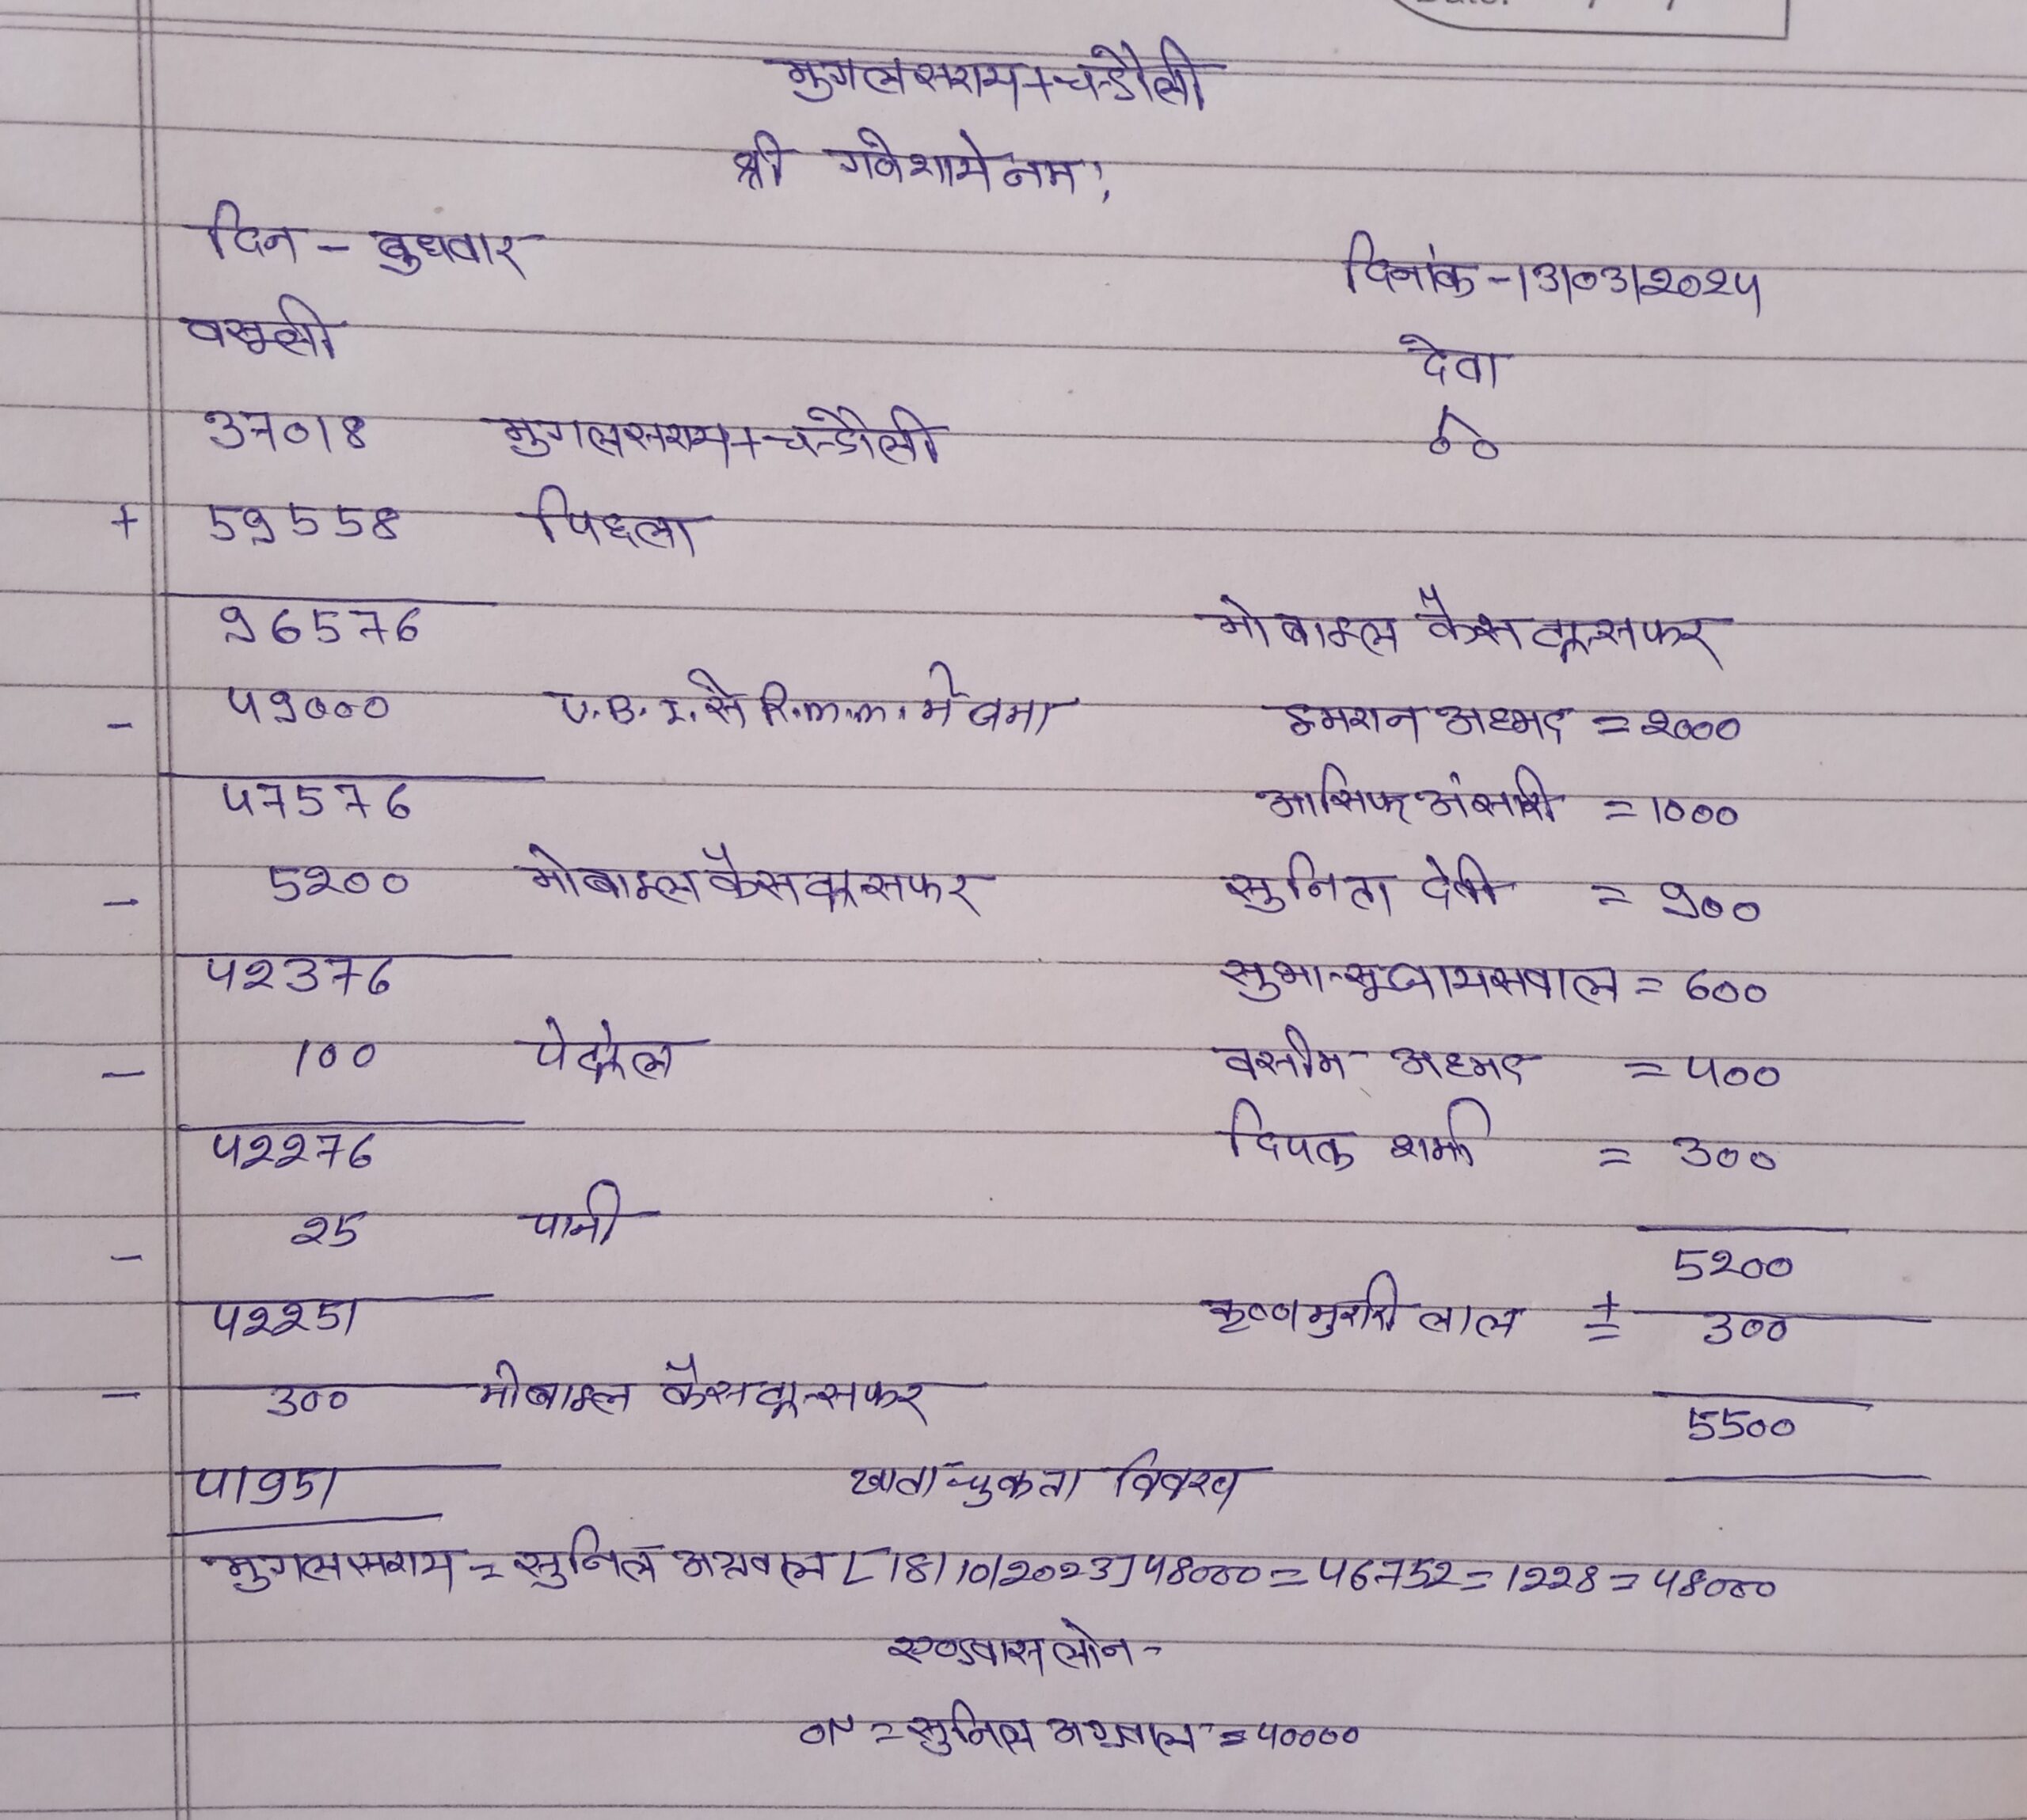 मुगलसराय+चन्डौली
श्री गनेशाये नम:
दिन - बुधवार
दिनांक - 13/03/2024
वसूली
देवा
37018 मुगलसराय+चन्डौली
+ 59558 पिछला
96576
मोबाइल कैस ट्रान्सफर
- 49000 U.B.I. से R.m.m. में जमा
इमरान अहमद = 2000
47576
आसिफ अंसारी = 1000
- 5200 मोबाइल कैस ट्रान्सफर
सुनिता देवी = 900
42376
सुभान्सू जायसवाल = 600
- 100 पेट्रोल
वसीम अहमद = 400
42276
दिपक शर्मा = 300
- 25 पानी
5200
42251
कृष्ण मुरारी लाल ± 300
- 300 मोबाइल कैस ट्रान्सफर
5500
41951
खाता चुकता विवरण
मुगलसराय = सुनिल अग्रवाल [18/10/2023] 48000 = 46752 = 1228 = 48000
एण्डवास लोन -
ON = सुनिल अग्रवाल = 40000